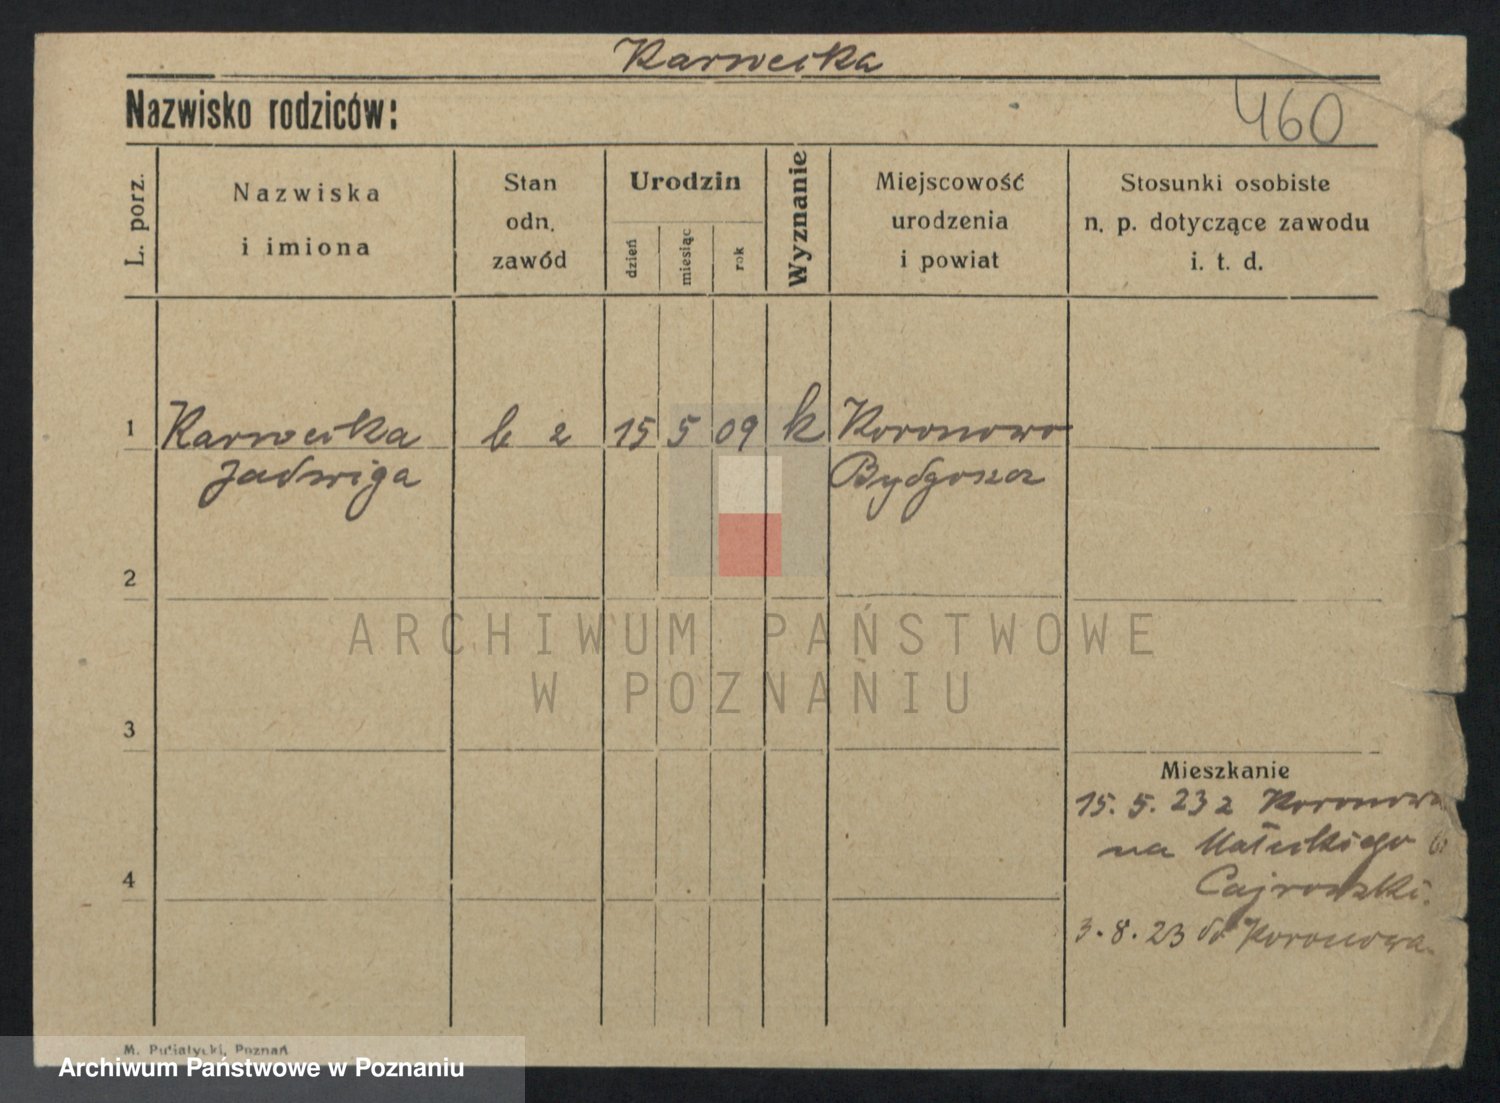 Karwecka
Nazwisko rodziców:
460
L. porz.
Nazwiska
i imiona
Stan
odn.
zawód
Urodzin
dzień
miesiąc
rok
Wyznanie
Miejscowość
urodzenia
i powiat
Stosunki osobiste
n. p. dotyczące zawodu
i. t. d.
1 Karwecka b 2 15 5 09 k Koronowo
Jadwiga Bydgoszcz
2
ARCHIWUM PAŃSTWOWE
W POZNANIU
3
Mieszkanie
15. 5. 23 z Koronowa
na Małeckiego
4
3. 8. 23 do Koronowa.
M. Putiatycki, Poznań
Archiwum Państwowe w Poznaniu